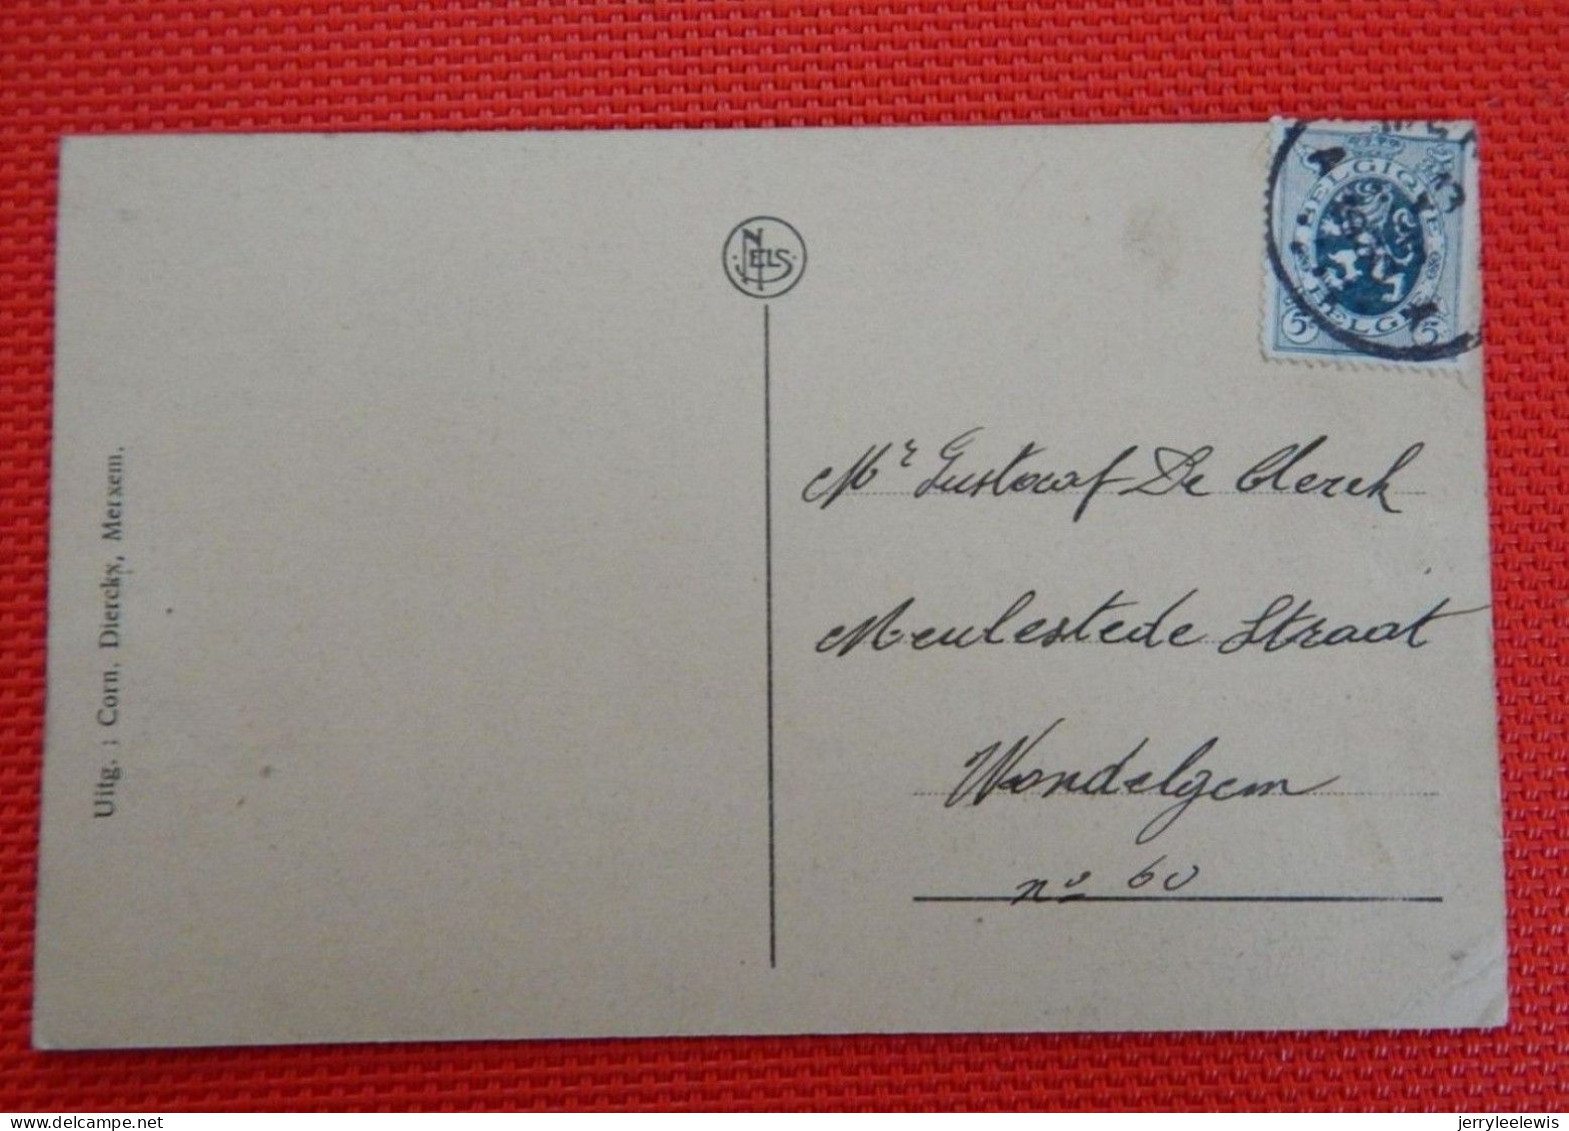 NELS
BELGIQUE
BELGIE
5 5
Mr Gustaaf De Clerck
Meulestede Straat
Wondelgem
no 60
Uitg. : Corn. Dierckx, Merxem.
jerryleelewis